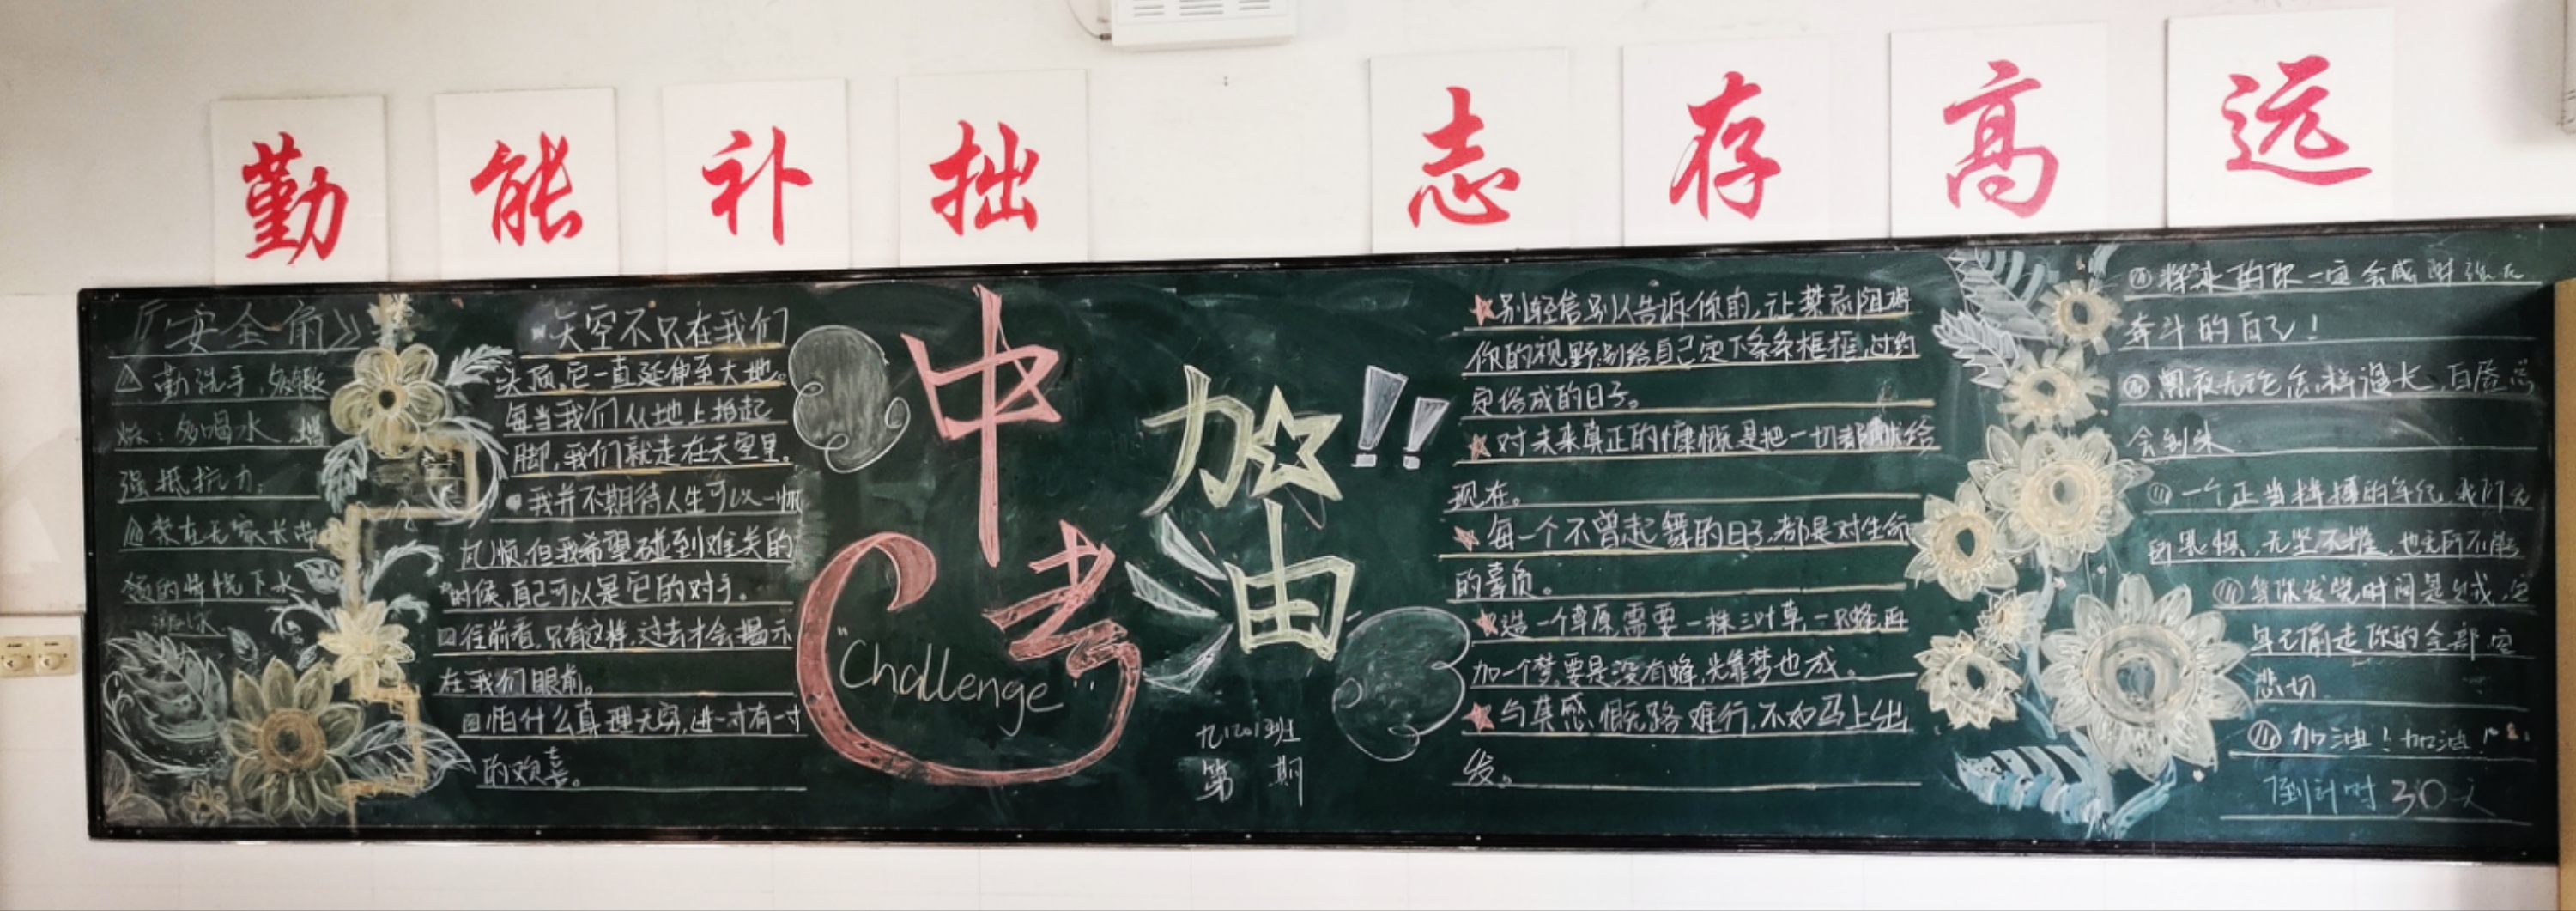 勤能补拙 志存高远
安全
勤洗手,多锻
炼:多喝水 增
强抵抗力;
禁在无家长带
领的情况下水
游泳
天空不只在我们
头顶,它一直延伸至大地。
每当我们从地上抬起
脚,我们就走在天空里。
我并不期待人生可以一帆
风顺,但我希望碰到难关的
时候,自己可以是它的对手。
往前看,只有这样,过去才会揭示
在我们眼前。
怕什么真理无穷,进一寸有一寸
的欢喜。
中考
加油!!
"Challenge"
九(20)班
第 期
别轻信别人告诉你的,让禁忌阻碍
你的视野,别给自己定下条条框框,过约
定俗成的日子。
对未来真正的慷慨是把一切都献给
现在。
每一个不曾起舞的日子,都是对生命
的辜负。
造一个草原,需要一株三叶草,一只蜂,再
加一个梦,要是没有蜂,光靠梦也成。
与其感慨路难行,不如马上出
发。
将来的你一定会感谢现在
奋斗的自己!
黑夜无论怎样漫长,白昼总
会到来
一个正当拼搏的年纪,我们无
所畏惧,无坚不摧,也无所不能
等你发觉时间是贼,它
早已偷走你的全部
悲切
加油!加油!
倒计时 30天